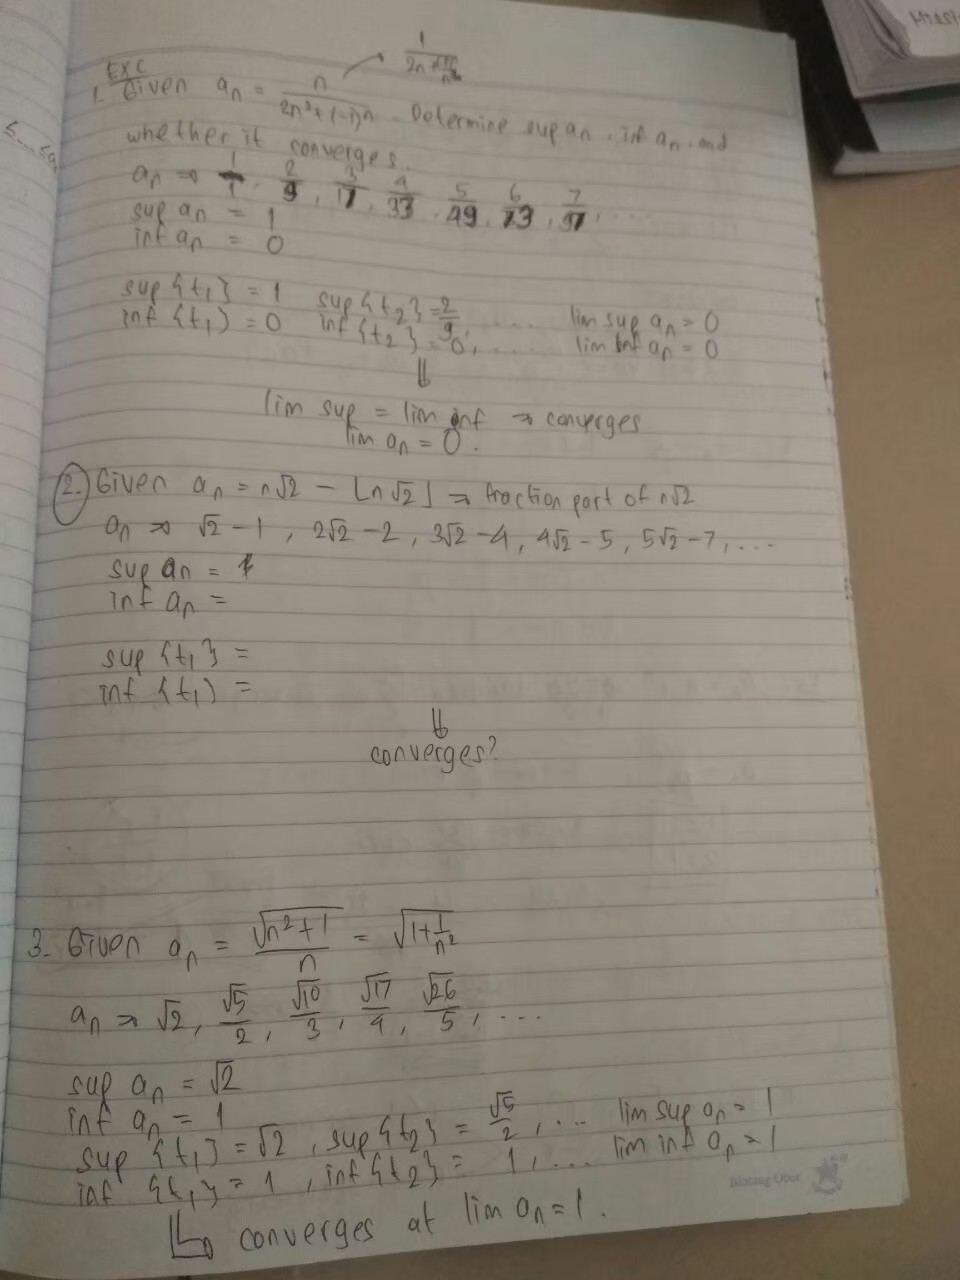 Exc
1. Given aₙ = n / (2n² + (-1)ⁿ). Determine sup aₙ, inf aₙ, and
whether it converges.
aₙ ⇒ 1/1, 2/9, 3/17, 4/33, 5/49, 6/73, 7/97, ...
sup aₙ = 1
inf aₙ = 0
sup {t₁} = 1 sup {t₂} = 2/9, ... lim sup aₙ = 0
inf {t₁} = 0 inf {t₂} = 0, ... lim inf aₙ = 0
⇓
lim sup = lim inf ⇒ converges
lim aₙ = 0.
2. Given aₙ = n√2 - ⌊n√2⌋ ⇒ fraction part of n√2
aₙ ⇒ √2 - 1, 2√2 - 2, 3√2 - 4, 4√2 - 5, 5√2 - 7, ...
sup aₙ =
inf aₙ =
sup {t₁} =
inf {t₁} =
⇓
converges?
3. Given aₙ = √(n²+1) / n = √(1 + 1/n²)
aₙ ⇒ √2, √5/2, √10/3, √17/4, √26/5, ...
sup aₙ = √2
inf aₙ = 1
sup {t₁} = √2, sup {t₂} = √5/2, ... lim sup aₙ = 1
inf {t₁} = 1, inf {t₂} = 1, ... lim inf aₙ = 1
converges at lim aₙ = 1.
Bintang Obor